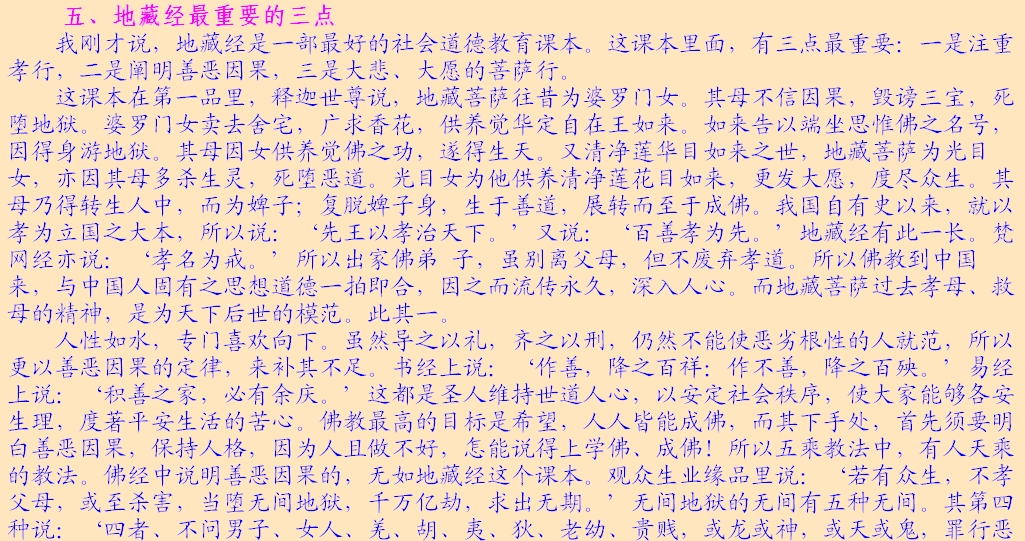 五、地藏经最重要的三点
我刚才说，地藏经是一部最好的社会道德教育课本。这课本里面，有三点最重要：一是注重
孝行，二是阐明善恶因果，三是大悲、大愿的菩萨行。
这课本在第一品里，释迦世尊说，地藏菩萨往昔为婆罗门女。其母不信因果，毁谤三宝，死
堕地狱。婆罗门女卖去舍宅，广求香花，供养觉华定自在王如来。如来告以端坐思惟佛之名号，
因得身游地狱。其母因女供养觉佛之功，遂得生天。又清净莲华目如来之世，地藏菩萨为光目
女，亦因其母多杀生灵，死堕恶道。光目女为他供养清净莲花目如来，更发大愿，度尽众生。其
母乃得转生人中，而为婢子；复脱婢子身，生于善道，展转而至于成佛。我国自有史以来，就以
孝为立国之大本，所以说：‘先王以孝治天下。’又说：‘百善孝为先。’地藏经有此一长。梵
网经亦说：‘孝名为戒。’所以出家佛弟 子，虽别离父母，但不废弃孝道。所以佛教到中国
来，与中国人固有之思想道德一拍即合，因之而流传永久，深入人心。而地藏菩萨过去孝母、救
母的精神，是为天下后世的模范。此其一。
人性如水，专门喜欢向下。虽然导之以礼，齐之以刑，仍然不能使恶劣根性的人就范，所以
更以善恶因果的定律，来补其不足。书经上说：‘作善，降之百祥：作不善，降之百殃。’易经
上说：‘积善之家，必有余庆。’这都是圣人维持世道人心，以安定社会秩序，使大家能够各安
生理，度著平安生活的苦心。佛教最高的目标是希望，人人皆能成佛，而其下手处，首先须要明
白善恶因果，保持人格，因为人且做不好，怎能说得上学佛、成佛！所以五乘教法中，有人天乘
的教法。佛经中说明善恶因果的，无如地藏经这个课本。观众生业缘品里说：‘若有众生，不孝
父母，或至杀害，当堕无间地狱，千万亿劫，求出无期。’无间地狱的无间有五种无间。其第四
种说：‘四者、不问男子、女人、羌、胡、夷、狄、老幼、贵贱，或龙或神，或天或鬼，罪行恶